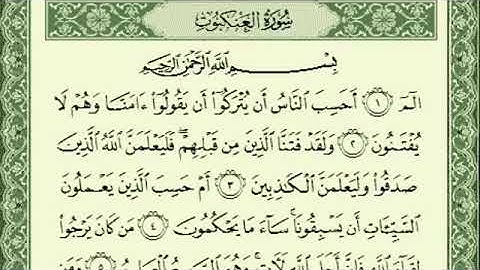 سُورَةُ العَنكَبُوتِ
بِسْمِ ٱللَّهِ ٱلرَّحْمَٰنِ ٱلرَّحِيمِ
الٓمٓ ١ أَحَسِبَ ٱلنَّاسُ أَن يُتْرَكُوٓا۟ أَن يَقُولُوٓا۟ ءَامَنَّا وَهُمْ لَا
يُفْتَنُونَ ٢ وَلَقَدْ فَتَنَّا ٱلَّذِينَ مِن قَبْلِهِمْ ۖ فَلَيَعْلَمَنَّ ٱللَّهُ ٱلَّذِينَ
صَدَقُوا۟ وَلَيَعْلَمَنَّ ٱلْكَٰذِبِينَ ٣ أَمْ حَسِبَ ٱلَّذِينَ يَعْمَلُونَ
ٱلسَّيِّـَٔاتِ أَن يَسْبِقُونَا ۚ سَآءَ مَا يَحْكُمُونَ ٤ مَن كَانَ يَرْجُوا۟
لِقَآءَ ٱللَّهِ فَإِنَّ أَجَلَ ٱللَّهِ لَـَٔاتٍ ۚ وَهُوَ ٱلسَّمِيعُ ٱلْعَلِيمُ ٥ وَمَن